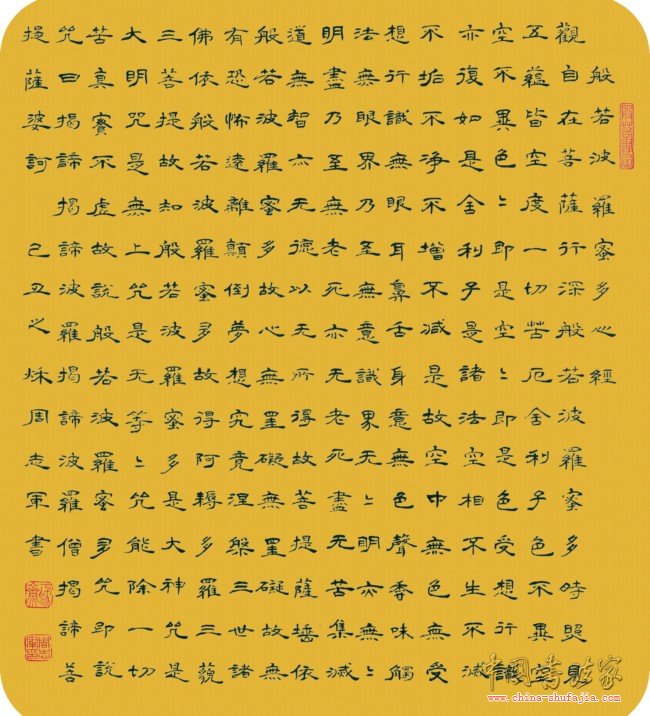 般若波羅蜜多心經
觀自在菩薩行深般若波羅蜜多時照見
五蘊皆空度一切苦厄舍利子色不異空
空不異色々即是空々即是色受想行識
亦復如是舍利子是諸法空相不生不滅
不垢不淨不增不減是故空中無色無受
想行識無眼耳鼻舌身意無色聲香味觸
法無眼界乃至無意識界无々明亦無々
明盡乃至無老死亦无老死盡无苦集滅
道無智亦无德以无所得故菩提薩埵依
般若波羅蜜多故心無罣礙無罣礙故無
有恐怖遠離顛倒夢想究竟涅槃三世諸
佛依般若波羅蜜多故得阿耨多羅三藐
三菩提故知般若波羅蜜多是大神咒是
大明咒是無上咒是无等々咒能除一切
苦真實不虛故說般若波羅蜜多咒即說
咒曰揭諦揭諦波羅揭諦波羅僧揭諦菩
提薩婆訶 己丑之秋周志軍書
中国书法家
www.china-shufajia.com